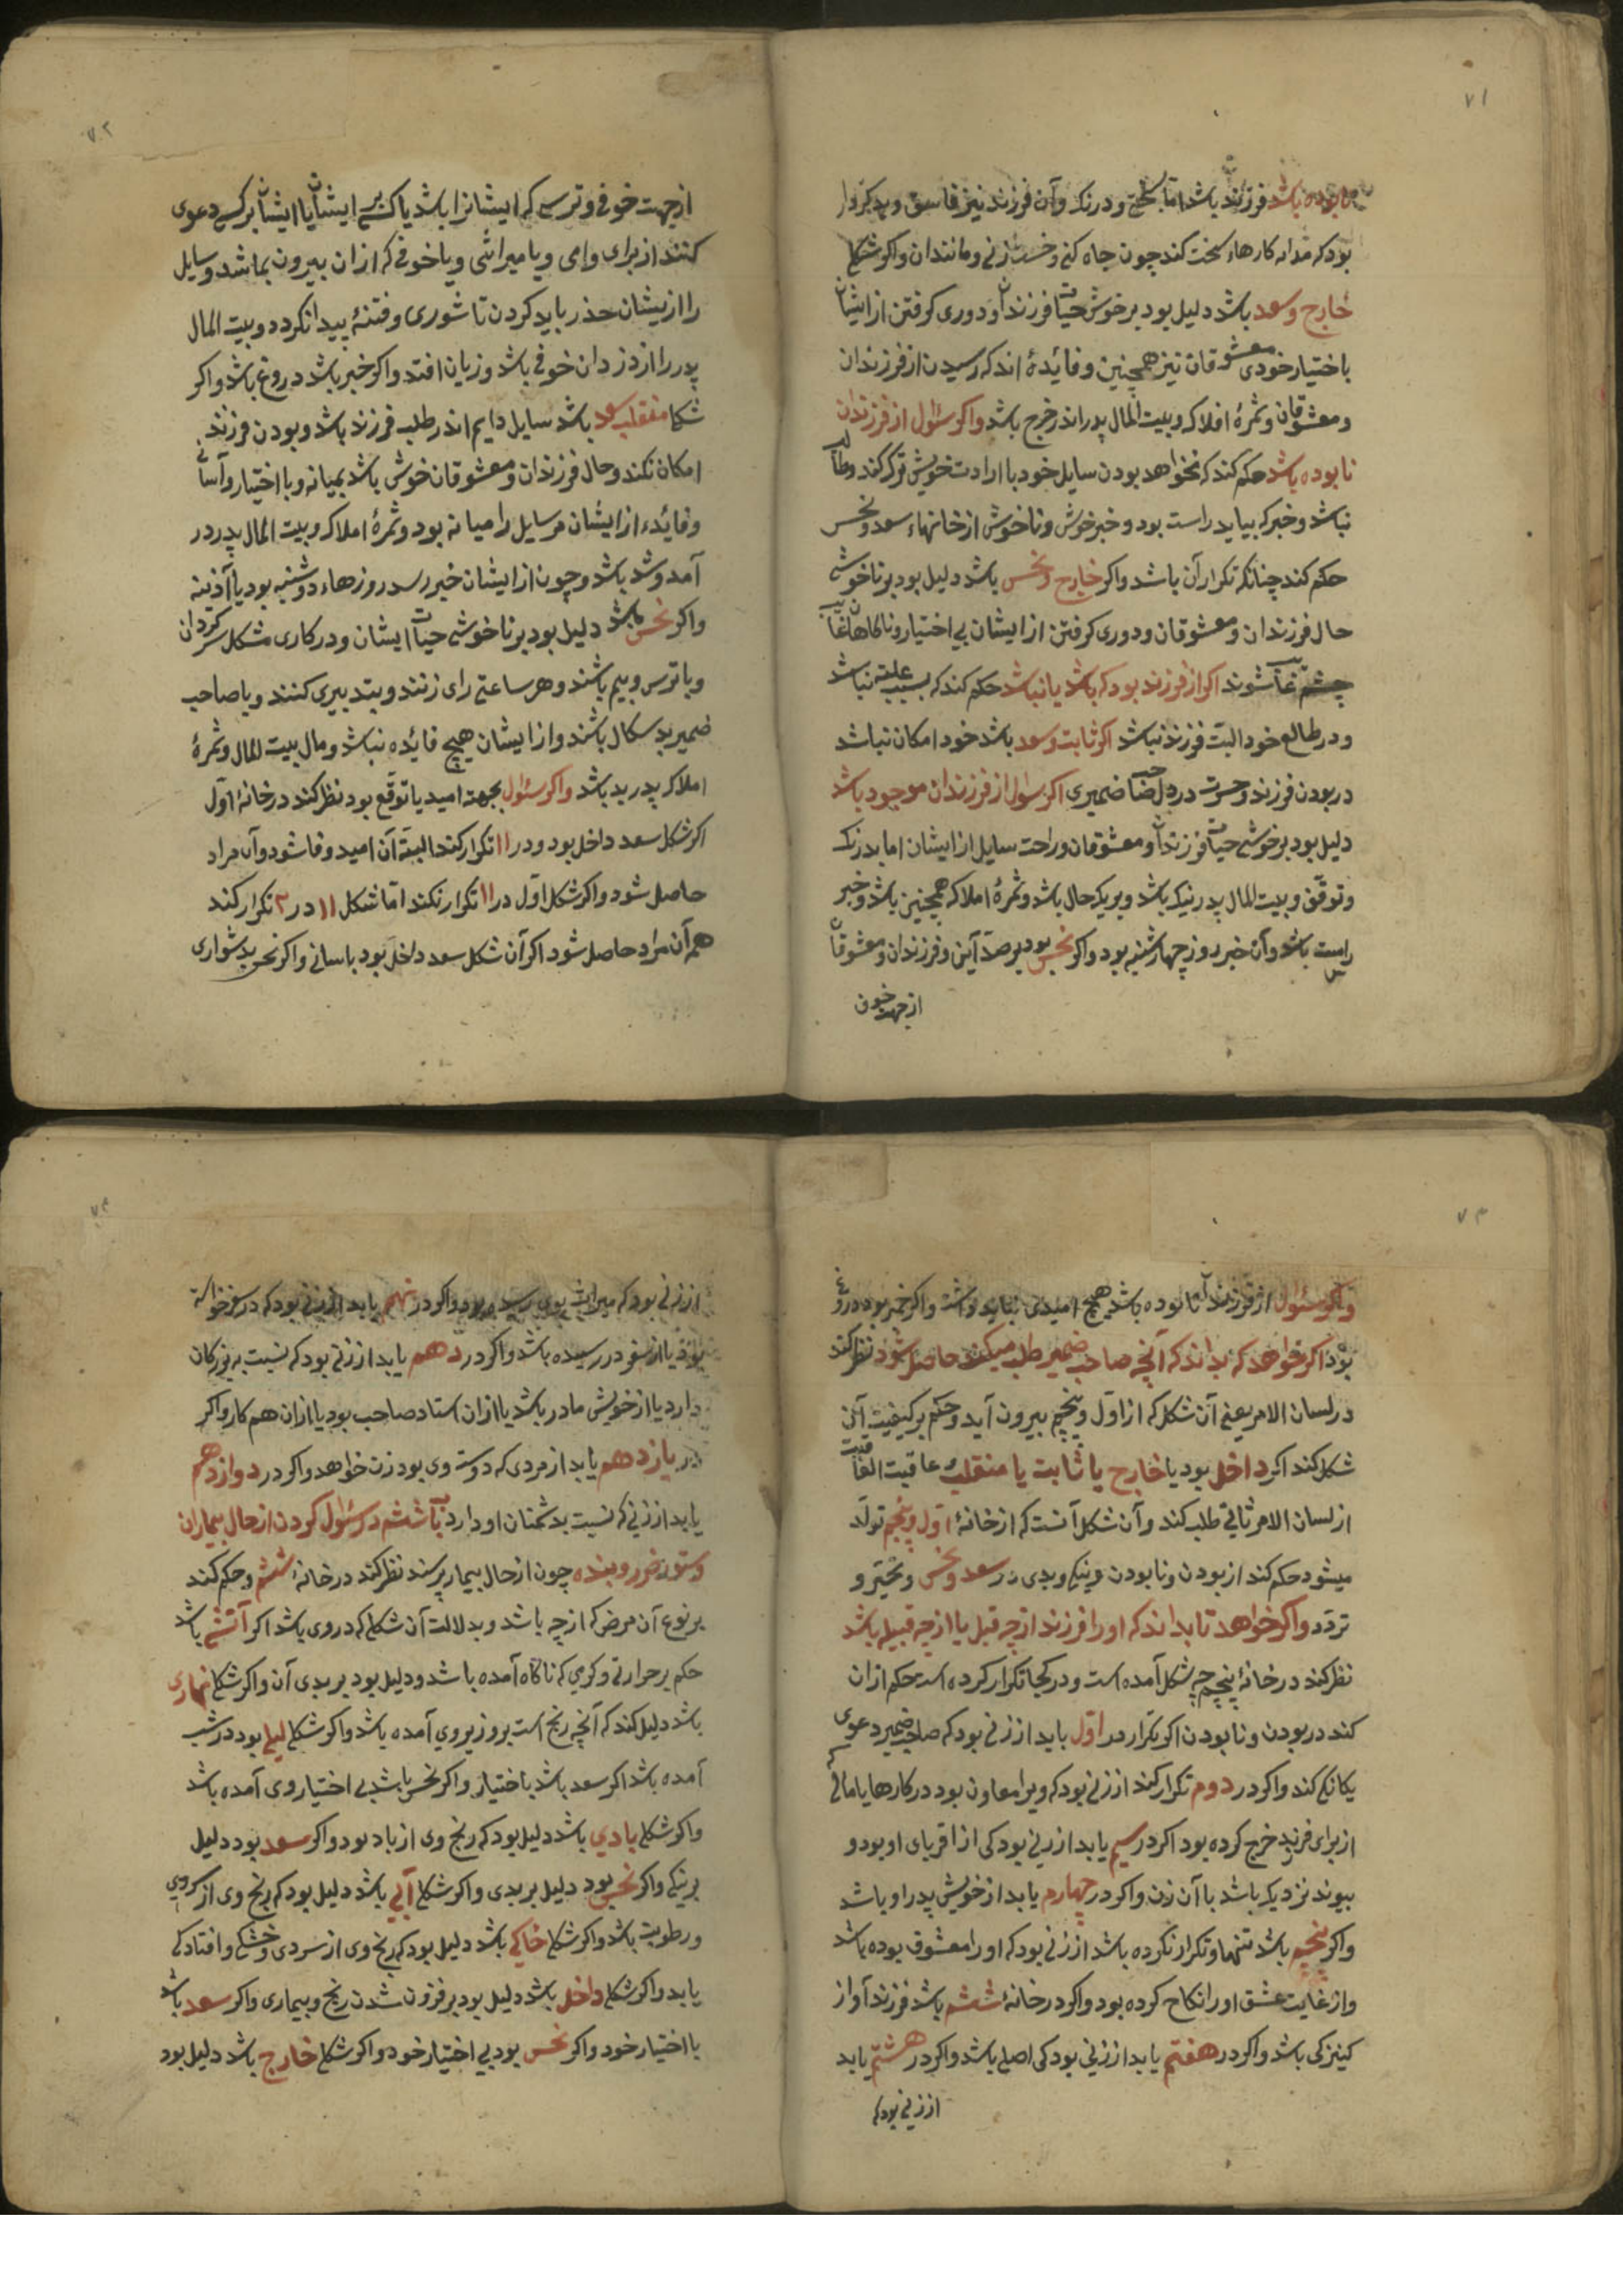 ۷۱
نابوده باشد فرزند باشد اما بسختی و درنک و آن فرزند نیز فاسق و بدکردار
بود که مدام کارهاء سخت کند چون جاه کنی و خشت زنی و مانند ان واکر شکل
خارج و سعد باشد دلیل بود بر خوشی حیات فرزندان و دوری کرفتن از ایشان
باختیار خودی معشوقان نیز همچنین و فائدهٔ اندک رسیدن از فرزندان
و معشوقان و ثمرهٔ املاک و بیت المال پدر اندر خرج باشد واکر سئوال از فرزندان
نابوده باشد حکم کند که نخواهد بودن سایل خود با ارادت خویش ترک کند و طالب
نباشد و خبر که بیاید راست بود و خبر خوش و ناخوش از خانهاء سعد و نحس
حکم کند چنانکه تکرار آن باشد واکر خارج و نحس باشد دلیل بود بر ناخوشی
حال فرزندان و معشوقان و دوری کرفتن از ایشان بی اختیار و ناکاهان غایب
شوند اکر از فرزند بود که باشد یا نباشد حکم کند که بسبب علتی نباشد
و در طالع خود البت فرزند نباشد اکر ثابت و سعد باشد خود امکان نباشد
در بودن فرزند و حسرت در دل صاحب ضمیری اکر سئوال از فرزندان موجود باشد
دلیل بود بر خوشی حیات فرزندان و معشوقان و راحت سایل از ایشان اما بدرنک
و توقف و بیت المال پدر نیک باشد و بر یک حال باشد و ثمرهٔ املاک همچنین باشد و خبر
راست باشد و آن خبر روز چهارشنبه بود واکر نحس بود بر ضد این و فرزندان و معشوقان
از جهت خوف
۷۲
از جهت خوفی و ترسی که ایشانرا باشد یا کسی بر ایشان یا ایشان بر کسی دعوی
کنند از برای وامی و یا میراثی و یا خوفی که ازان بیرون نباشد و سایل
را ازیشان حذر باید کردن تا شوری و فتنهٔ پیدا نکردد و بیت المال
پدر را از دزدان خوفی باشد و زیان افتد واکر خبر باشد دروغ باشد واکر
شکل منقلب سعد باشد سایل دایم اندر طلب فرزند باشد و بودن فرزند
امکان نکند و حال فرزندان و معشوقان خوش باشد بمیانه و با اختیار و آسانی
و فائدء از ایشان مر سایل را میانه بود و ثمرهٔ املاک و بیت المال پدر در
آمد و شد باشد و چون از ایشان خبر رسد روزهاء دوشنبه بود یا آذینه
واکر نحس باشد دلیل بود بر ناخوشی حیات ایشان و در کاری مشکل سرکردان
و با ترس و بیم باشند و هر ساعتی رای زنند و بتدبیری کنند و با صاحب
ضمیر بد سکال باشند و از ایشان هیچ فائده نباشد و مال بیت المال و ثمرهٔ
املاک پدر بد باشد واکر سئوال بجهت امید یا توقع بود نظر کند در خانهٔ اول
اکر شکل سعد داخل بود و در ۱۱ تکرار کند البته آن امید وفا شود و آن مراد
حاصل شود واکر شکل اول در ۱۱ تکرار نکند اما شکل ۱۱ در ۲ تکرار کند
هم آن مراد حاصل شود اکر آن شکل سعد داخل بود باسانی واکر نحس بدشواری
۷۳
واکر سئوال از فرزندان نابوده باشد هیچ امیدی نباید داشت واکر خبر بود دروغ
بود اکر خواهد که بداند که آنچه صاحب ضمیر طلب میکند حاصل شود نظر کند
در لسان الامر یعنی آن شکل که از اول و پنجم بیرون آید و حکم بر کیفیت آن
شکل کند اکر داخل بود یا خارج یا ثابت یا منقلب عاقبت
از لسان الامر ثانی طلب کند و آن شکل آنست که از خانهٔ اول و پنجم تولد
میشود حکم کند از بودن و نابودن و نیکی و بدی در سعد و نحس و تحیر و
تردد واکر خواهد تا بداند که او را فرزند از چه قبل یا از چه قبیله باشد
نظر کند در خانهٔ پنجم چه شکل آمده است و در کجا تکرار کرده است حکم ازان
کند در بودن و نابودن اکر تکرار در اول یابد از زنی بود که صاحب ضمیر دعوی
یکانکی کند واکر در دوم تکرار کند از زنی بود که ویرا معاون بود در کارها یا مالی که
از برای فرزند خرج کرده بود اکر در سیم یابد از زنی بود کی از اقربای او بود و
پیوند نزدیک باشد با آن زن واکر در چهارم یابد از خویش پدر او باشد
واکر پنجم باشد تنها و تکرار نکرده باشد از زنی بود که او را معشوق بوده باشد
و از غایت عشق او را نکاح کرده بود واکر در خانهٔ ششم باشد فرزند آواز
کنیزکی باشد واکر در هفتم یابد از زنی بود کی اصلی باشد واکر در هشتم یابد
از زنی بود که
۷۴
از زنی بود که میراث بوی رسیده بود واکر در نهم یابد از زنی بود که در سفر خواسته
بود یا از سفر در رسیده باشد واکر در دهم یابد از زنی بود که نسبت به بزرکان
دارد یا از خویش مادر باشد یا ازان استاد صاحب بود یا ازان هم کار واکر
در یازدهم یابد از مردی که دوست وی بود زن خواهد واکر در دوازدهم
یابد از زنی که نسبت بدشمنان او دارد باب ششم در سئوال کردن از حال بیماران
و ستور خرد و بنده چون از حال بیمار پرسند نظر کند در خانهٔ ششم و حکم کند
بر نوع آن مرض که از چه باشد و بدلالت آن شکل که در وی باشد اکر آتشی باشد
حکم بر حرارتی و کرمی که ناکاه آمده باشد و دلیل بود بر بدی آن واکر شکل نهاری
باشد دلیل کند که آنچه رنج است بروز بر وی آمده باشد واکر شکل لیلی بود در شب
آمده باشد اکر سعد باشد باختیار واکر نحس باشد بی اختیار وی آمده باشد
واکر شکل بادی باشد دلیل بود که رنج وی از باد بود واکر سعد بود دلیل
بر نیکی واکر نحس بود دلیل بر بدی واکر شکل آبی باشد دلیل بود که رنج وی از سردی
و رطوبت باشد واکر شکل خاکی باشد دلیل بود که رنج وی از سردی و خشکی و افتادکی
یابد واکر شکل داخل باشد دلیل بود بر فزون شدن رنج و بیماری واکر سعد باشد
با اختیار خود واکر نحس بود بی اختیار خود واکر شکل خارج باشد دلیل بود